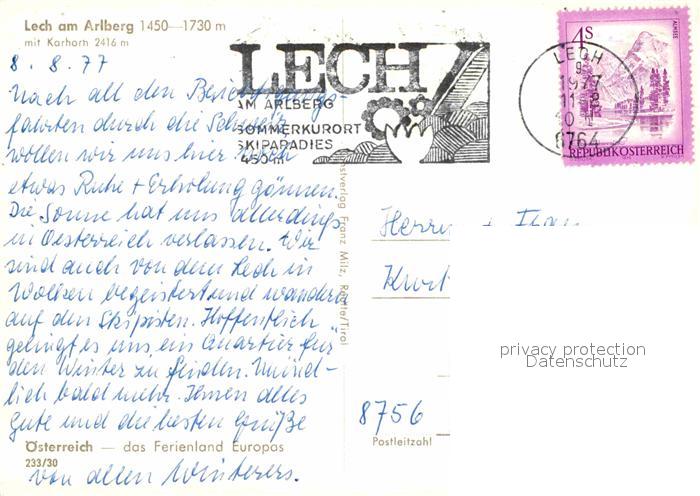 Lech am Arlberg 1450—1730 m
mit Karhorn 2416 m
8. 8. 77
Nach all den Besichtigungs-
fahrten durch die Schweiz
wollen wir uns hier noch
etwas Ruhe + Erholung gönnen.
Die Sonne hat uns allerdings
in Oesterreich verlassen. Wir
sind auch von dem Lech in
Wolken begeistert und wandern
auf den Skipisten. Hoffentlich
gelingt es uns ein Quartier für
den Winter zu finden. Münd-
lich bald mehr. Ihnen alles
gute und die besten Grüße
Österreich — das Ferienland Europas
233/30
von allen Winterers.
LECH
AM ARLBERG
SOMMERKURORT
SKIPARADIES
1450m
LECH
1977
6764
4S
ALMSEE
REPUBLIK ÖSTERREICH
Franz Milz, Reutte/Tirol
Herrn
Kurt
privacy protection
Datenschutz
8756
Postleitzahl